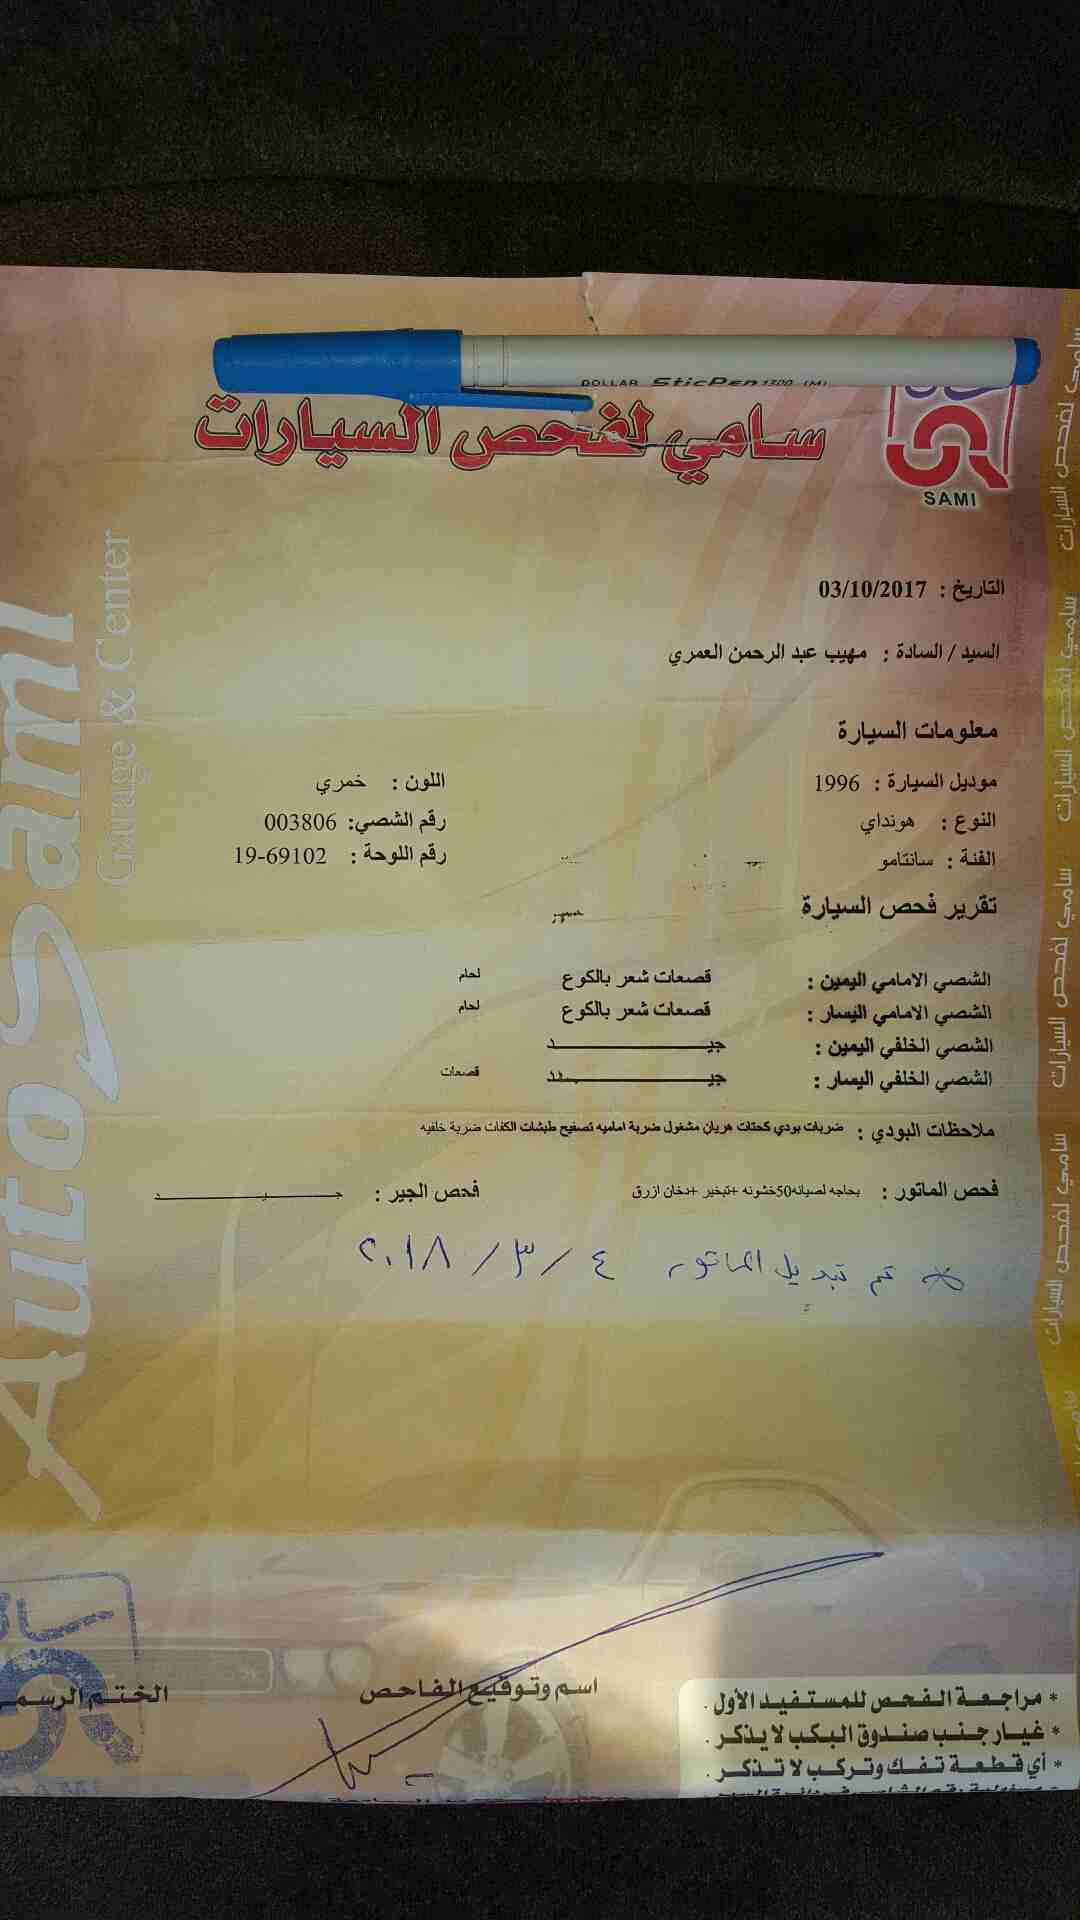 DOLLAR SticPen 1300 (M)
سامي لفحص السيارات
SAMI
التاريخ : 03/10/2017
السيد / السادة : مهيب عبد الرحمن العمري
معلومات السيارة
موديل السيارة : 1996 اللون : خمري
النوع : هونداي رقم الشصي: 003806
الفئة : سانتامو رقم اللوحة : 19-69102
تقرير فحص السيارة
الشصي الامامي اليمين : قصعات شعر بالكوع لحام
الشصي الامامي اليسار : قصعات شعر بالكوع لحام
الشصي الخلفي اليمين : جيــــــــد
الشصي الخلفي اليسار : جيــــــــد قصعات
ملاحظات البودي : ضربات بودي كحتات هريان مشغول ضربة اماميه تصفيح طبشات الكفات ضربة خلفيه
فحص الماتور : بحاجه لصيانه50خشونه +تبخير +دخان ازرق فحص الجير : جــــــيــــــد
* تم تبديل الماتور ٤ / ٣ / ٢٠١٨
اسم وتوقيع الفاحص
الختم الرسمي
* مراجعة الفحص للمستفيد الأول .
* غيار جنب صندوق البكب لا يذكر .
* أي قطعة تفك وتركب لا تذكر .
Auto Sami
Garage & Center
سامي لفحص السيارات
سامي لفحص السيارات
سامي لفحص السيارات
سامي لفحص السيارات